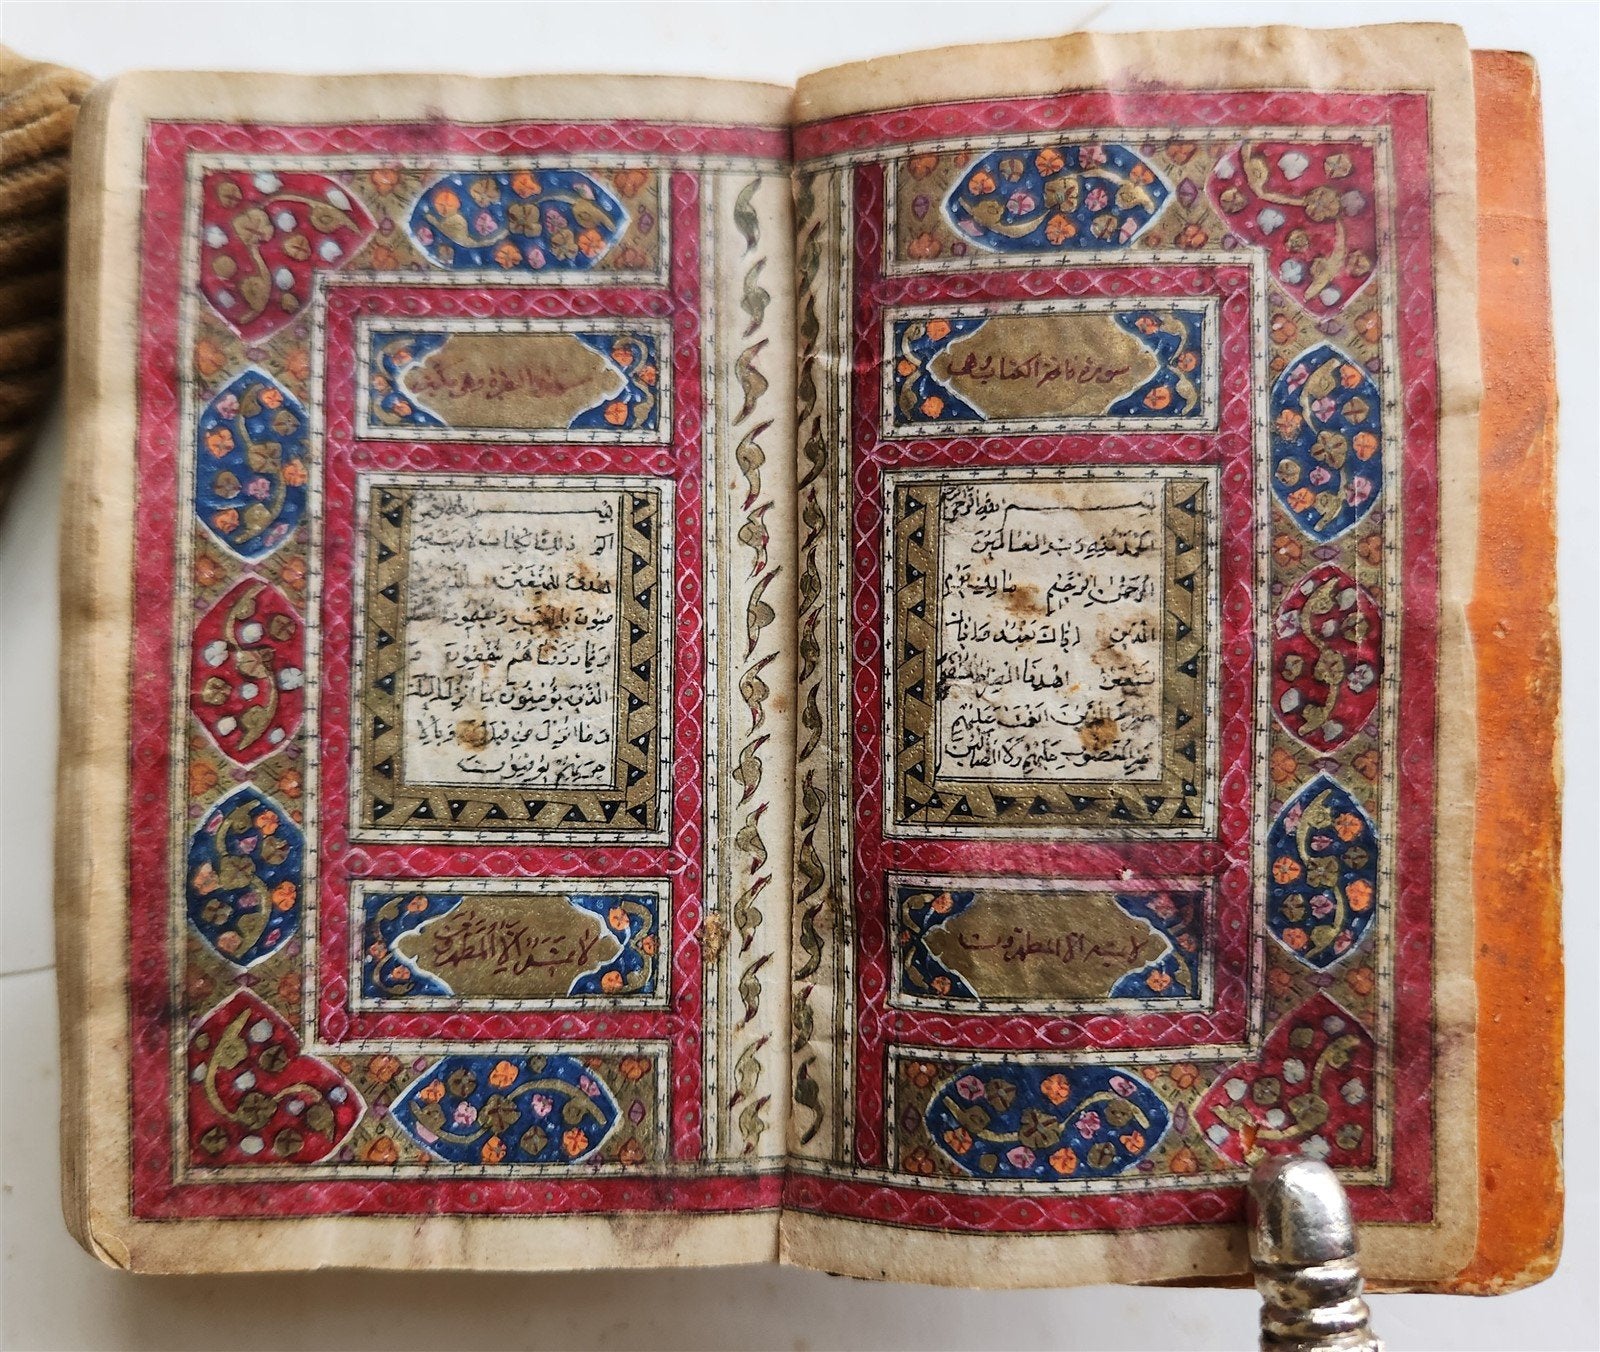 سورة فاتحة الكتاب
بسم الله الرحمن
الحمد لله رب العالمين
الرحمن الرحيم مالك يوم
الدين إياك نعبد وإياك
نستعين اهدنا الصراط المستقيم
صراط الذين أنعمت عليهم
غير المغضوب عليهم ولا الضالين
لا يمسه الا المطهرون
سورة البقرة
بسم الله الرحمن
الم ذلك الكتاب لا ريب فيه
هدى للمتقين الذين يؤ
منون بالغيب ويقيمون
ومما رزقناهم ينفقون و
الذين يؤمنون بما أنزل إليك
وما أنزل من قبلك وبالا
خرة هم يوقنون
لا يمسه إلا المطهرون